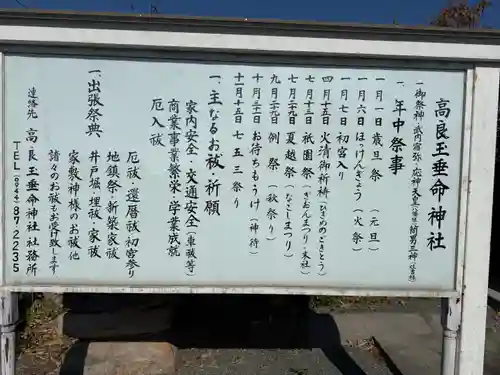 高良玉垂命神社
一 御祭神
一、年中祭事
一月一日 歳旦祭(元旦)
一月六日 ほっけんぎょう(火祭)
一月七日 初宮入り
四月十五日 火清御祈祷(ひきよめごきとう)
七月十五日 祇園祭(ぎおんまつり・本社)
七月二九日 夏越祭(なごしまつり)
九月二九日 例祭(秋祭り)
十月三十日 お待ちもうけ(神待)
十一月十五日 七五三祭り
一、主なるお祓・祈願
家内安全・交通安全(車祓等)
商業事業繁栄・学業成就
厄入祓
厄祓・還暦祓・初宮参り
一、出張祭典
地鎮祭・新築家祓
井戸堀・埋祓・家祓
家敷神様のお祓他
諸々のお祓もお受け致します
連絡先 高良玉垂命神社 社務所
TEL(0944)87-2235